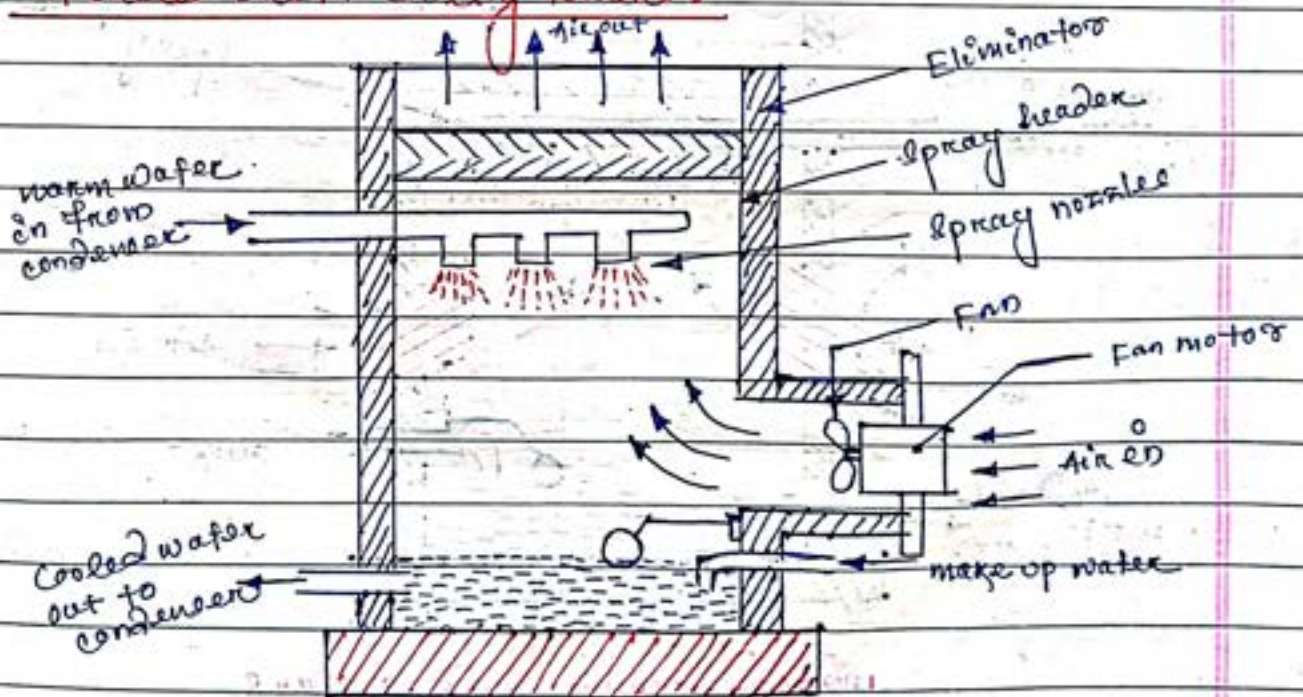 Air out
Eliminator
Spray header
Spray nozzles
warm water
in from
condenser
Fan
Fan motor
Air in
Cooled water
out to
condenser
make up water